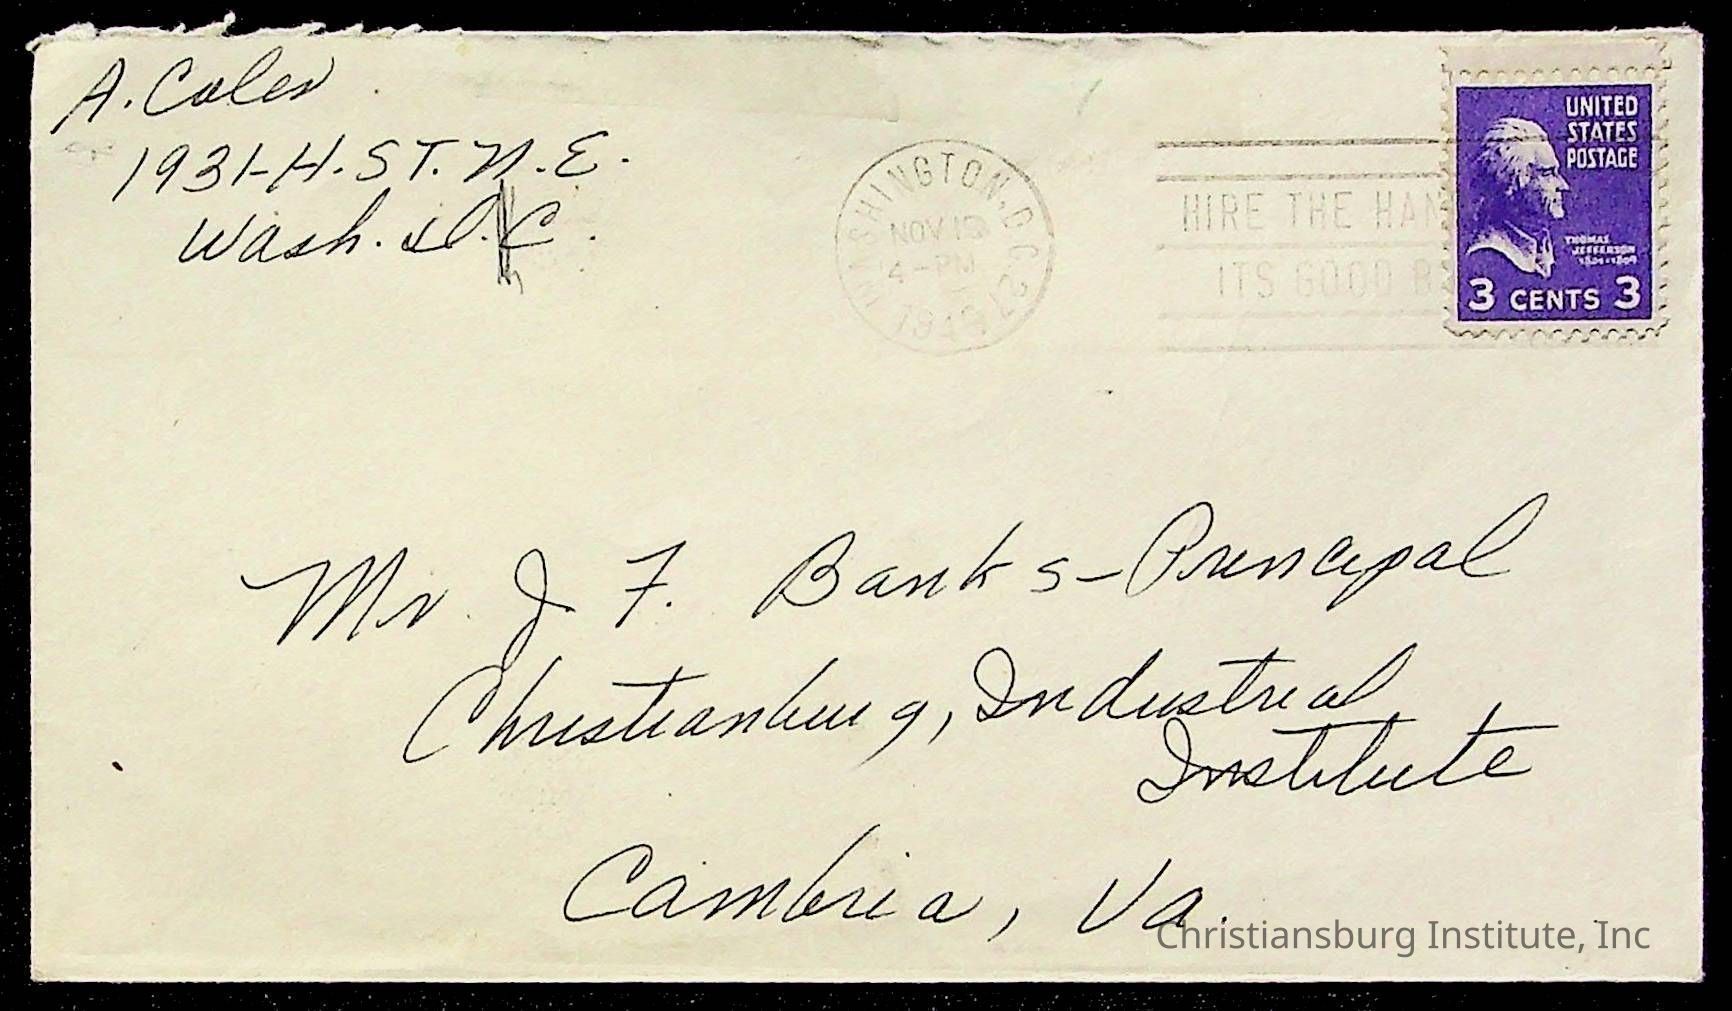 A. Coles
1931-H. ST. N.E.
Wash. D.C.
WASHINGTON, D.C.
NOV
4-PM
HIRE THE HAN
ITS GOOD B
UNITED
STATES
POSTAGE
THOMAS
JEFFERSON
3 CENTS 3
Mr. J F. Banks-Principal
Christianburg, Industrial
Institute
Cambria, Va.
Christiansburg Institute, Inc